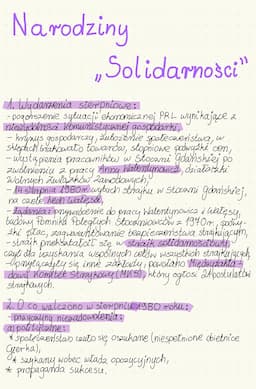 Narodziny
„Solidarności”
1. Wydarzenia sierpniowe:
- pogorszenie sytuacji ekonomicznej PRL wynikające z
niewydolności komunistycznej gospodarki,
- kryzys gospodarczy, zubożenie społeczeństwa, w
sklepach brakowało towarów, stopniowe podwyżki cen,
- wystąpienia pracowników w Stoczni Gdańskiej po
zwolnieniu z pracy Anny Walentynowicz, działaczki
Wolnych Związków Zawodowych,
- 14 sierpnia 1980r. wybuch strajku w Stoczni Gdańskiej,
na czele Lech Wałęsa,
- żądania: przywrócenie do pracy Walentynowicz i Wałęsy,
budowy Pomnika Poległych Stoczniowców z 1970r.,
płac, zagwarantowanie bezpieczeństwa strajkującym,
- strajk przekształcił się w strajk solidarnościowy,
czyli dla uzyskania wspólnych celów wszystkich strajkujących,
- przyłączały się inne zakłady, powołano Międzyzakła-
dowy Komitet Strajkowy (MKS), który ogłosił 21 postulatów
strajkowych.
2. O co walczono w sierpniu 1980 roku:
- przyczyny niezadowolenia:
a. polityczne:
* społeczeństwo czuło się oszukane (niespełnione obietnice
Gierka),
* szykany wobec władz opozycyjnych,
* propaganda sukcesu.